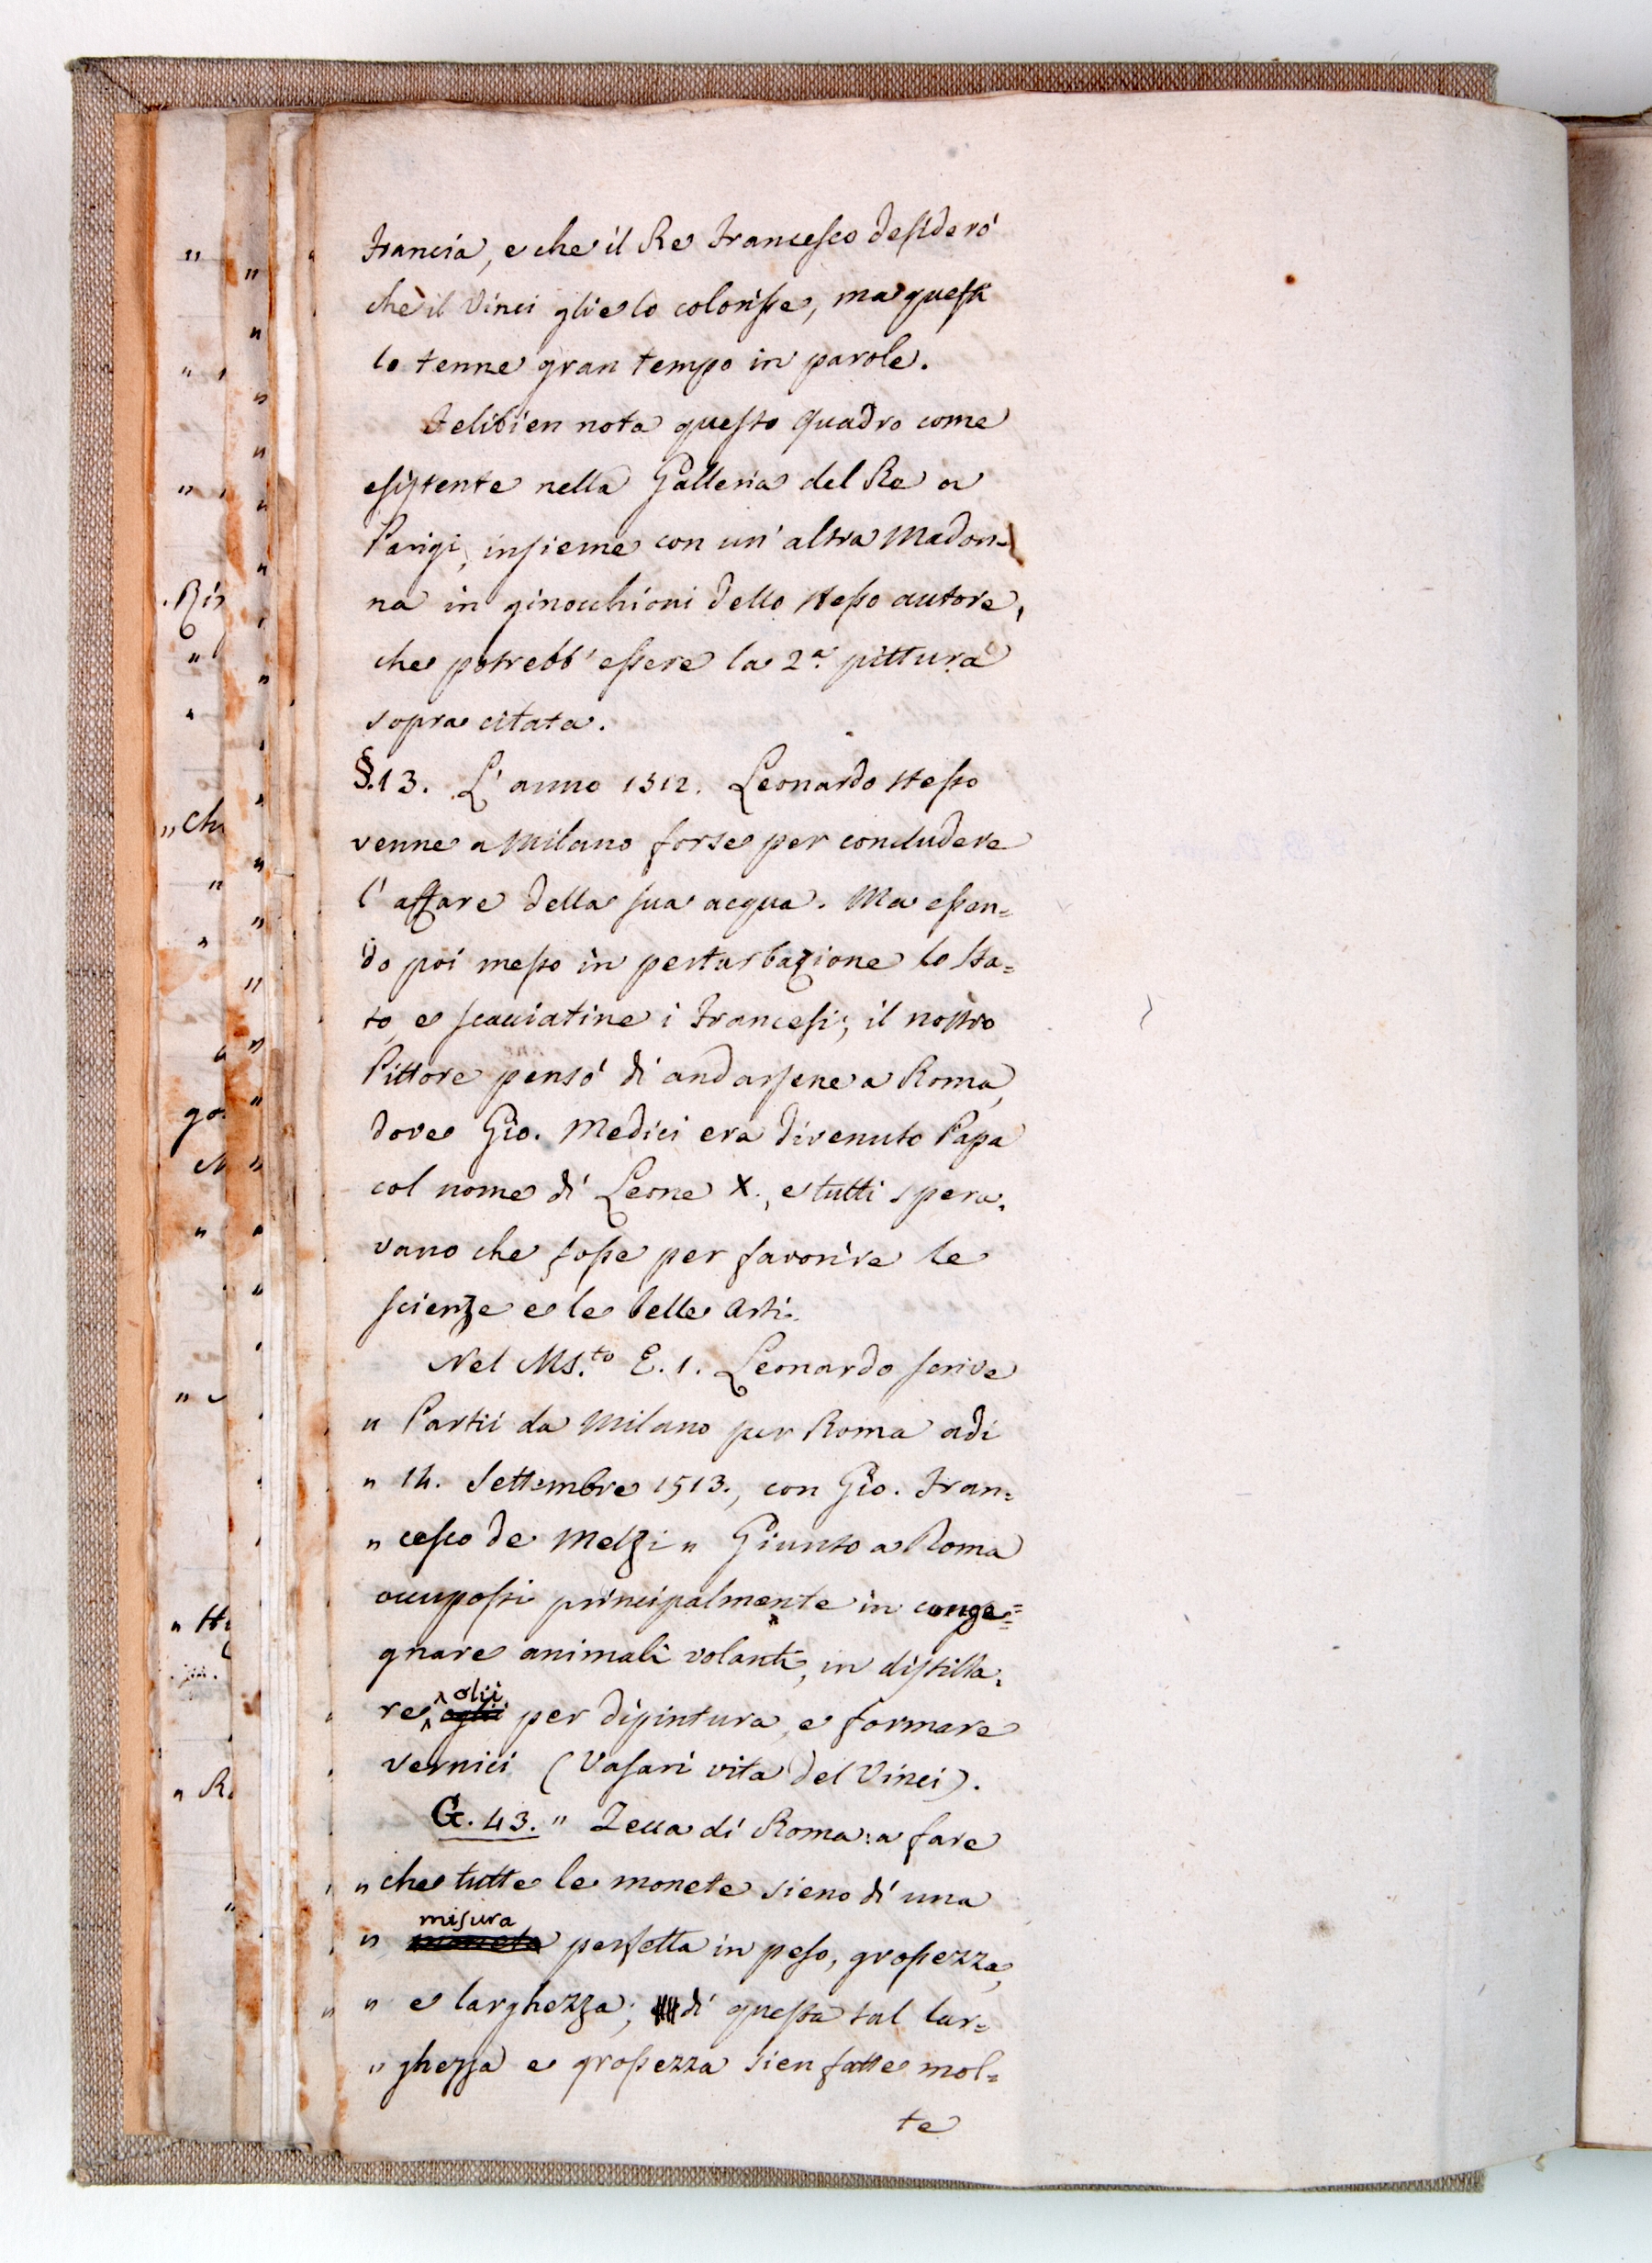 Francia, e che il Re Francesco desiderò
che il Vinci glielo colorisse, ma questi
lo tenne gran tempo in parole.
Felibien nota questo quadro come
esistente nella Galleria del Re a
Parigi, insieme con un' altra Madon-
na in ginocchioni dello stesso autore,
che potrebb' essere la 2.a pittura
sopra citata.
§.13. L' anno 1512. Leonardo stesso
venne a Milano forse per concludere
l' affare della sua acqua. Ma essen=
do poi messo in perturbazione lo Sta=
to, e scacciatine i Francesi; il nostro
Pittore pensò di andarsene a Roma,
dove Gio. Medici era divenuto Papa
col nome di Leone X., e tutti spera=
vano che fosse per favorire le
scienze e le belle arti.
Nel Ms.to E. 1. Leonardo scrive
" Partii da Milano per Roma adi
" 14. Settembre 1513., con Gio. Fran=
" cesco de Melzi " Giunto a Roma
occupossi principalmente in conge=
gnare animali volanti, in distilla=
re olii per dipintura, e formare
vernici (Vasari vita del Vinci).
G. 43. " Zecca di Roma: a fare
" che tutte le monete sieno di una
" misura perfetta in peso, grossezza,
" e larghezza; di questa tal lar=
" ghezza e grossezza sien fatte mol=
te